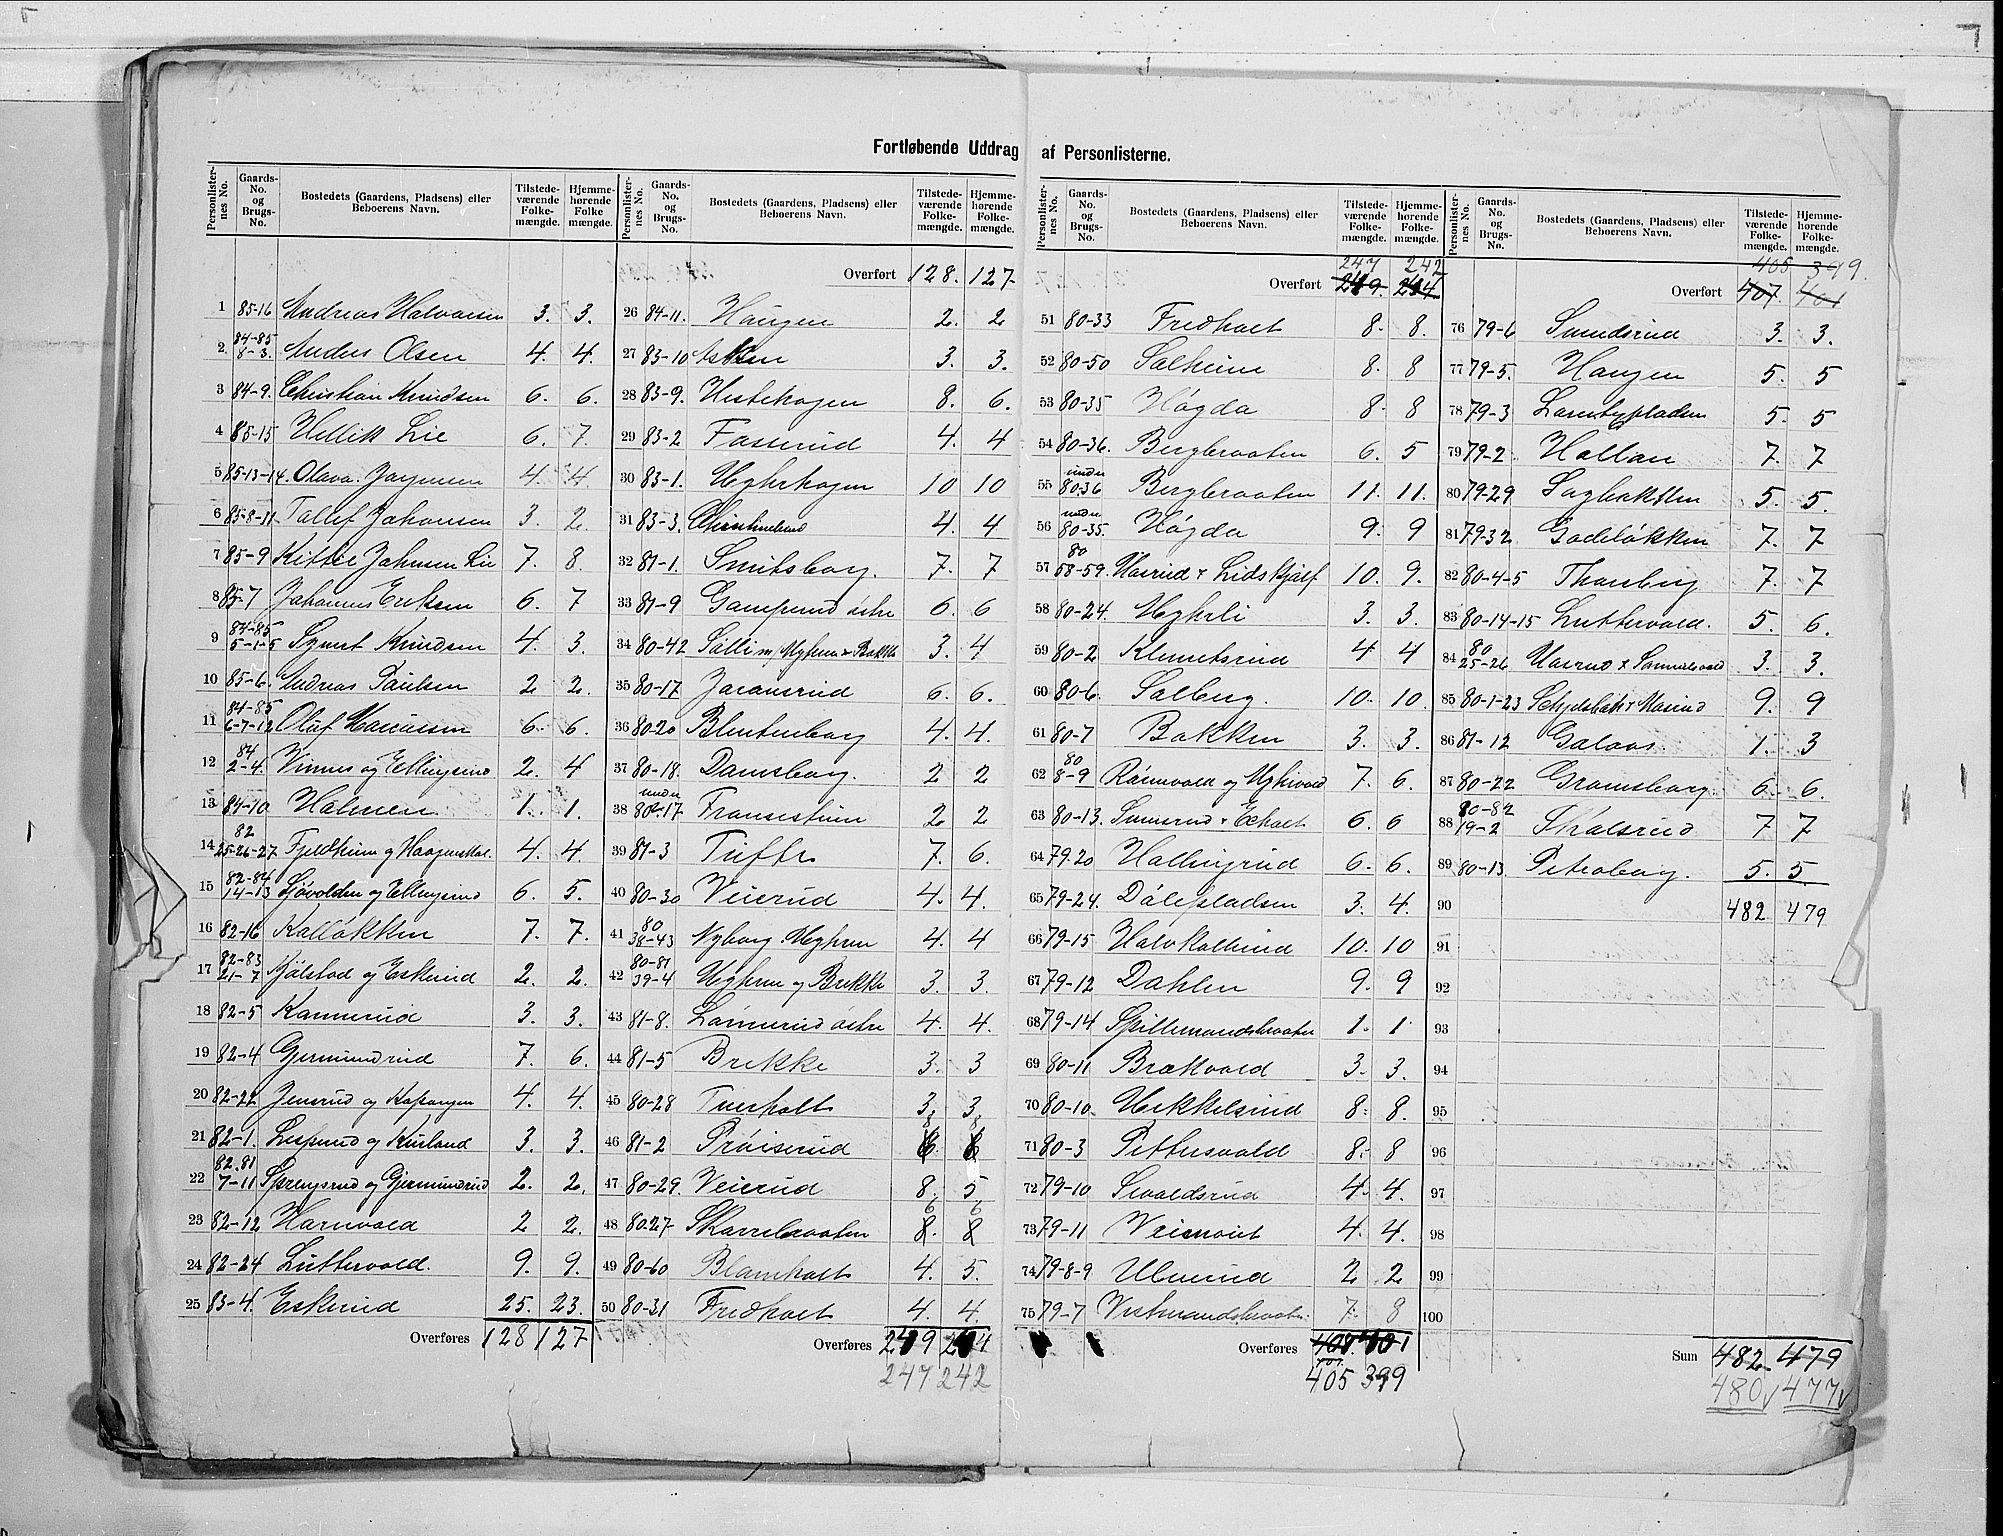 Fortløbende Uddrag af Personlisterne.
Personlister- nes No. Gaards- No. og Brugs- No. Bostedets (Gaardens, Pladsens) eller Beboerens Navn. Tilstede- værende Folke- mængde. Hjemme- hørende Folke mængde.
1 85-16 Andreas Halvorsen 3. 3.
2. 84-85 8-3. Anders Olsen 4. 4.
3 84-9. Christian Knudsen 6. 6.
4 85-15 Hellik Lie 6. 7.
5 85-13-14. Olava Jørgensen 4. 4.
6 85-8-11 Tollef Johansen 3. 2.
7 85-9 Kittil Johnsen Lie 7. 8.
8 85-7 Johannes Eriksen 6. 7
9 84-85 5-1-5 Syvert Knudsen 4. 3.
10 85-6. Andreas Paulsen 2 2.
11 84-85 6-7-12 Oluf 6. 6.
12 84 2-4. Vinnes og Ellingsrud 2. 4
13 84-10 Holmen 1. 1.
14 82 25-26-27 Fjeldheim og 4. 4.
15 82-84 14-13 Sjøvolden og Ellingsrud 6. 5.
16 82-16 Kalløkken 7. 7.
17 82-83 21-7 Kjølstad og Eskerud 2. 2.
18 82-5 Kamerud 3. 3.
19 82-4 Gjermundrud 7. 6.
20 82-22 Jensrud og Kopangen 4. 4.
21 82-1. Lesperud og 3. 3.
22 82.81 7-11 Sprengsrud og Gjermundrud 2. 2.
23 82-12 Harevold 2 2.
24 82-24 Luttervold. 9. 9.
25 83-4. Eskerud 25. 23.
Overføres 128 127
Personlister- nes No. Gaards- No. og Brugs- No. Bostedets (Gaardens, Pladsens) eller Beboerens Navn. Tilstede- værende Folke- mængde. Hjemme- hørende Folke- mængde.
Overført 128. 127.
26 84-11. Haugen 2. 2
27 83-10 Asken 3. 3.
28 83-9. Hestehagen 8. 6.
29 83-2 Fosserud 4. 4
30 83-1. Myhrhagen 10 10
31 83-3. Christinelund 4. 4
32 81-1. Smitsborg. 7. 7
33 81-9 Gamperud østre 6. 6
34 80-42 Solli m/ Myhren & Bakke 3. 4
35 80-17 Joransrud 6. 6.
36 80-20 Blentenborg 4. 4.
37 80-18. Damsborg. 2 2
38 under 80-17 Fransesheim 2 2
39 81-3 Tufte 7. 6.
40 80-30 Veierud 4. 4.
41 80 38-43 Nyborg Myhren 4. 4
42 80-81 39-4 Myhren og Brekke 3. 3.
43 81-8. Lomerud østre 4. 4.
44 81-5 Brekke 3. 3
45 80-28 Tuerholt 3. 3.
46 81-2 Prøiserud 8 8 6 6
47 80-29. Veierud 8. 5
48 80-27 Skarrebraaten 6 6 8. 8
49 80-60 Blomholt 4. 5.
50 80-31 Fredholt 4. 4.
Overføres 249 244
247 242
Personlister- nes No. Gaards- No. og Brugs- No. Bostedets (Gaardens, Pladsens) eller Beboerens Navn. Tilstede- værende Folke- mængde. Hjemme- hørende Folke- mængde.
247 242
Overført 249. 244
51 80-33 Fredholt 8. 8.
52 80-50 Solheim 8. 8
53 80-35 Høgda 8. 8
54 80-36. Bergbraaten 6. 5
55 under 80-36 Bergbraaten 11. 11.
56 under 80-35. Høgda 9. 9
57 80 58-59. Aasrud & Lidskjalf 10. 9.
58 80-24. Myhrli 3. 3.
59 80-2 Klemetsrud 4 4
60 80-6. Solberg. 10. 10.
61 80-7 Bakken 3. 3.
62 80 8-9 og Myhrvold 7. 6.
63 80-13. & Ekholt 6. 6
64 79.20 Hallingrud 6. 6.
65 79-24. Dølepladsen 3. 4.
66 79-15 Halvkallerud 10. 10
67 79-12 Dahlen 9. 9
68 79-14 Spillemandsbraaten 1. 1
69 80-11 Brækvold 3. 3.
70 80-10 Mekkelsrud 8. 8.
71 80-3 Pettersvold 8. 8
72 79-10 Sevaldsrud 4. 4.
73 79-11 Veimoit 4. 4.
74 79-8-9 Ulverud 2 2
75 79-7 Vestmandsbraaten. 7. 8
Overføres 408. 401
407.
405 399
Personlister- nes No. Gaards- No. og Brugs- No. Bostedets (Gaardens, Pladsens) eller Beboerens Navn. Tilstede- værende Folke- mængde. Hjemme- hørende Folke- mængde.
405 399.
Overført 407. 401
76 79-6 Svendsrud 3. 3.
77 79-5. Haugen 5. 5
78 79-3 Lovebypladsen 5. 5
79 79-2 Hollan 7. 7
80 79-29 Sagbakken 5. 5.
81 79-32 Godeløkken 7. 7
82 80-4-5 Thorsberg 7. 7
83 80-14-15 Luttervold. 5. 6.
84 80 25-26 Aasrud & 3. 3.
85 80-1-23 & Aasrud 9. 9
86 81-12 Galaas. 1. 3
87 80-22 Gramsborg. 6. 6.
88 80-82 19-2 Skalsrud 7 7
89 80-13. Petersborg. 5. 5
90 482 479
91
92
93
94
95
96
97
98
99
100
Sum 482 479
480 477